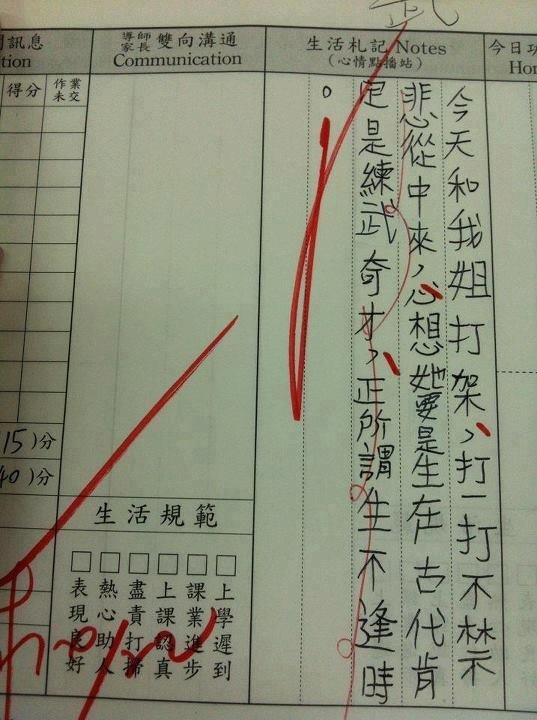 今日
Ho
生活札記 Notes
(心情點播站)
今天和我姐打架，打一打不禁
悲從中來，心想她要是生在古代肯
定是練武奇才，正所謂生不逢時
。
武
導師
家長
雙向溝通
Communication
訊息
tion
得分
作業
未交
15)分
40)分
生活規範
□上學遲到
□課業進步
□上課認真
□盡責打掃
□熱心助人
□表現良好